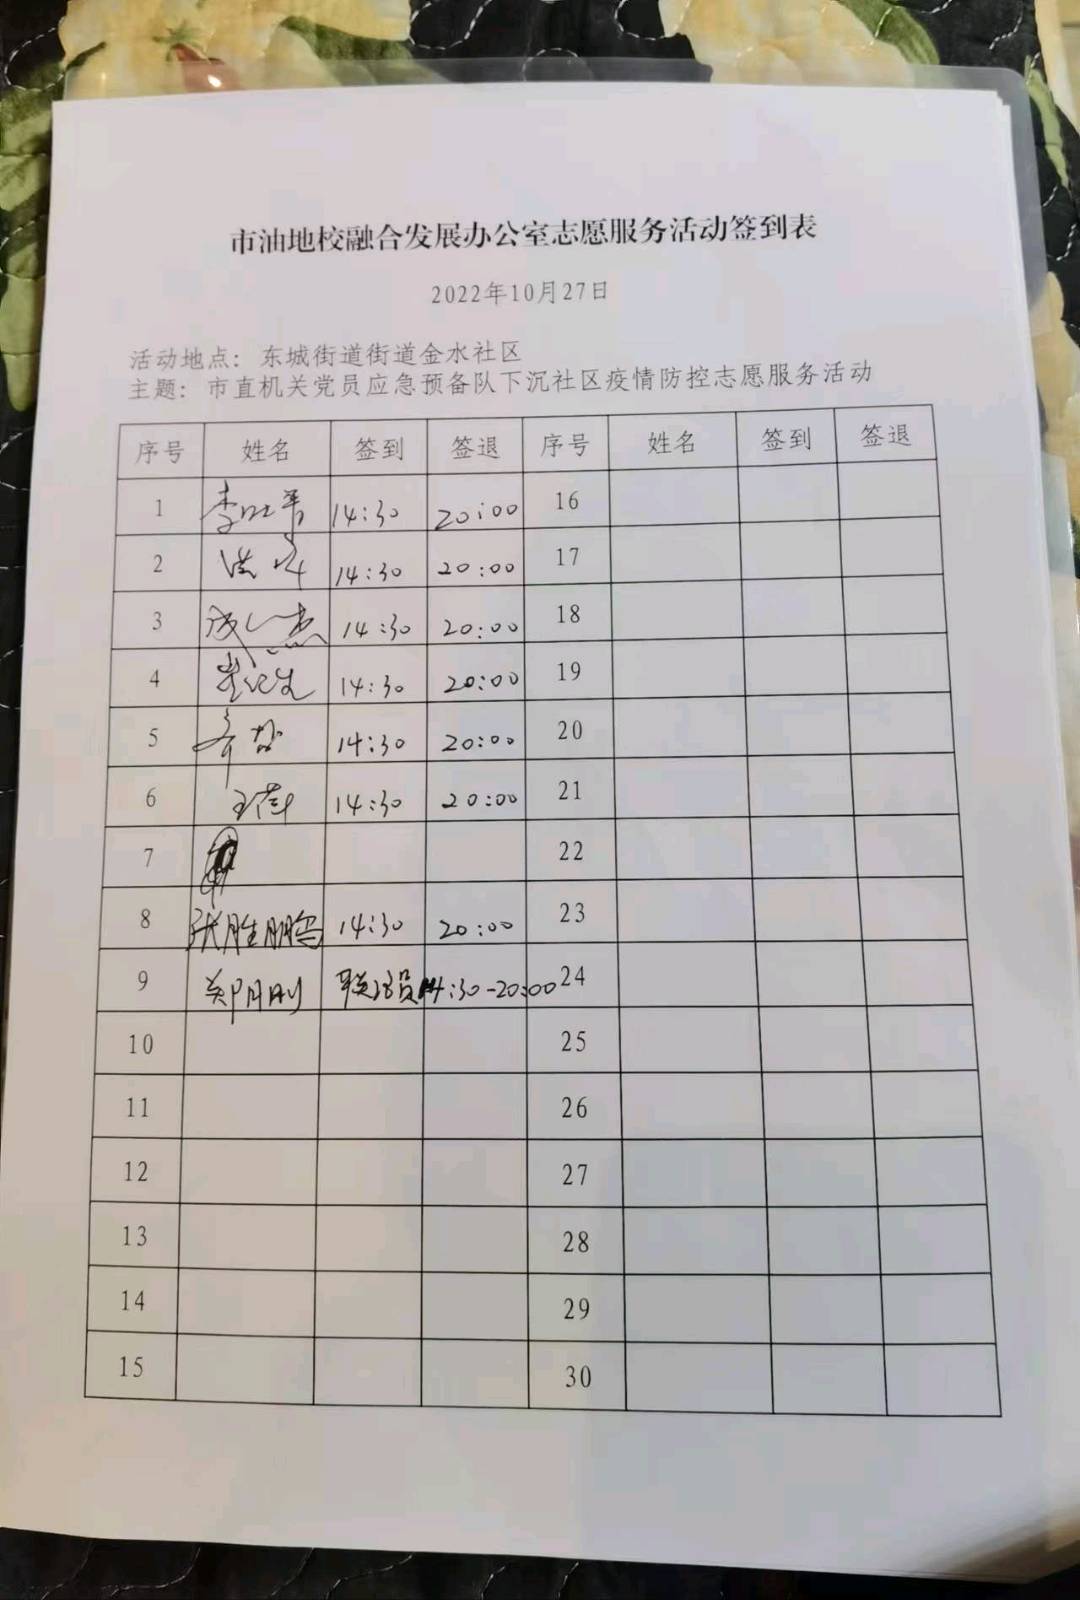 市油地校融合发展办公室志愿服务活动签到表
2022年10月27日
活动地点：东城街道街道金水社区
主题：市直机关党员应急预备队下沉社区疫情防控志愿服务活动
序号 姓名 签到 签退 序号 姓名 签到 签退
1 14:30 20:00 16
2 14:30 20:00 17
3 14:30 20:00 18
4 14:30 20:00 19
5 14:30 20:00 20
6 14:30 20:00 21
7 22
8 张胜鹏 14:30 20:00 23
9 郑月刚 联络员 14:30-20:00 24
10 25
11 26
12 27
13 28
14 29
15 30